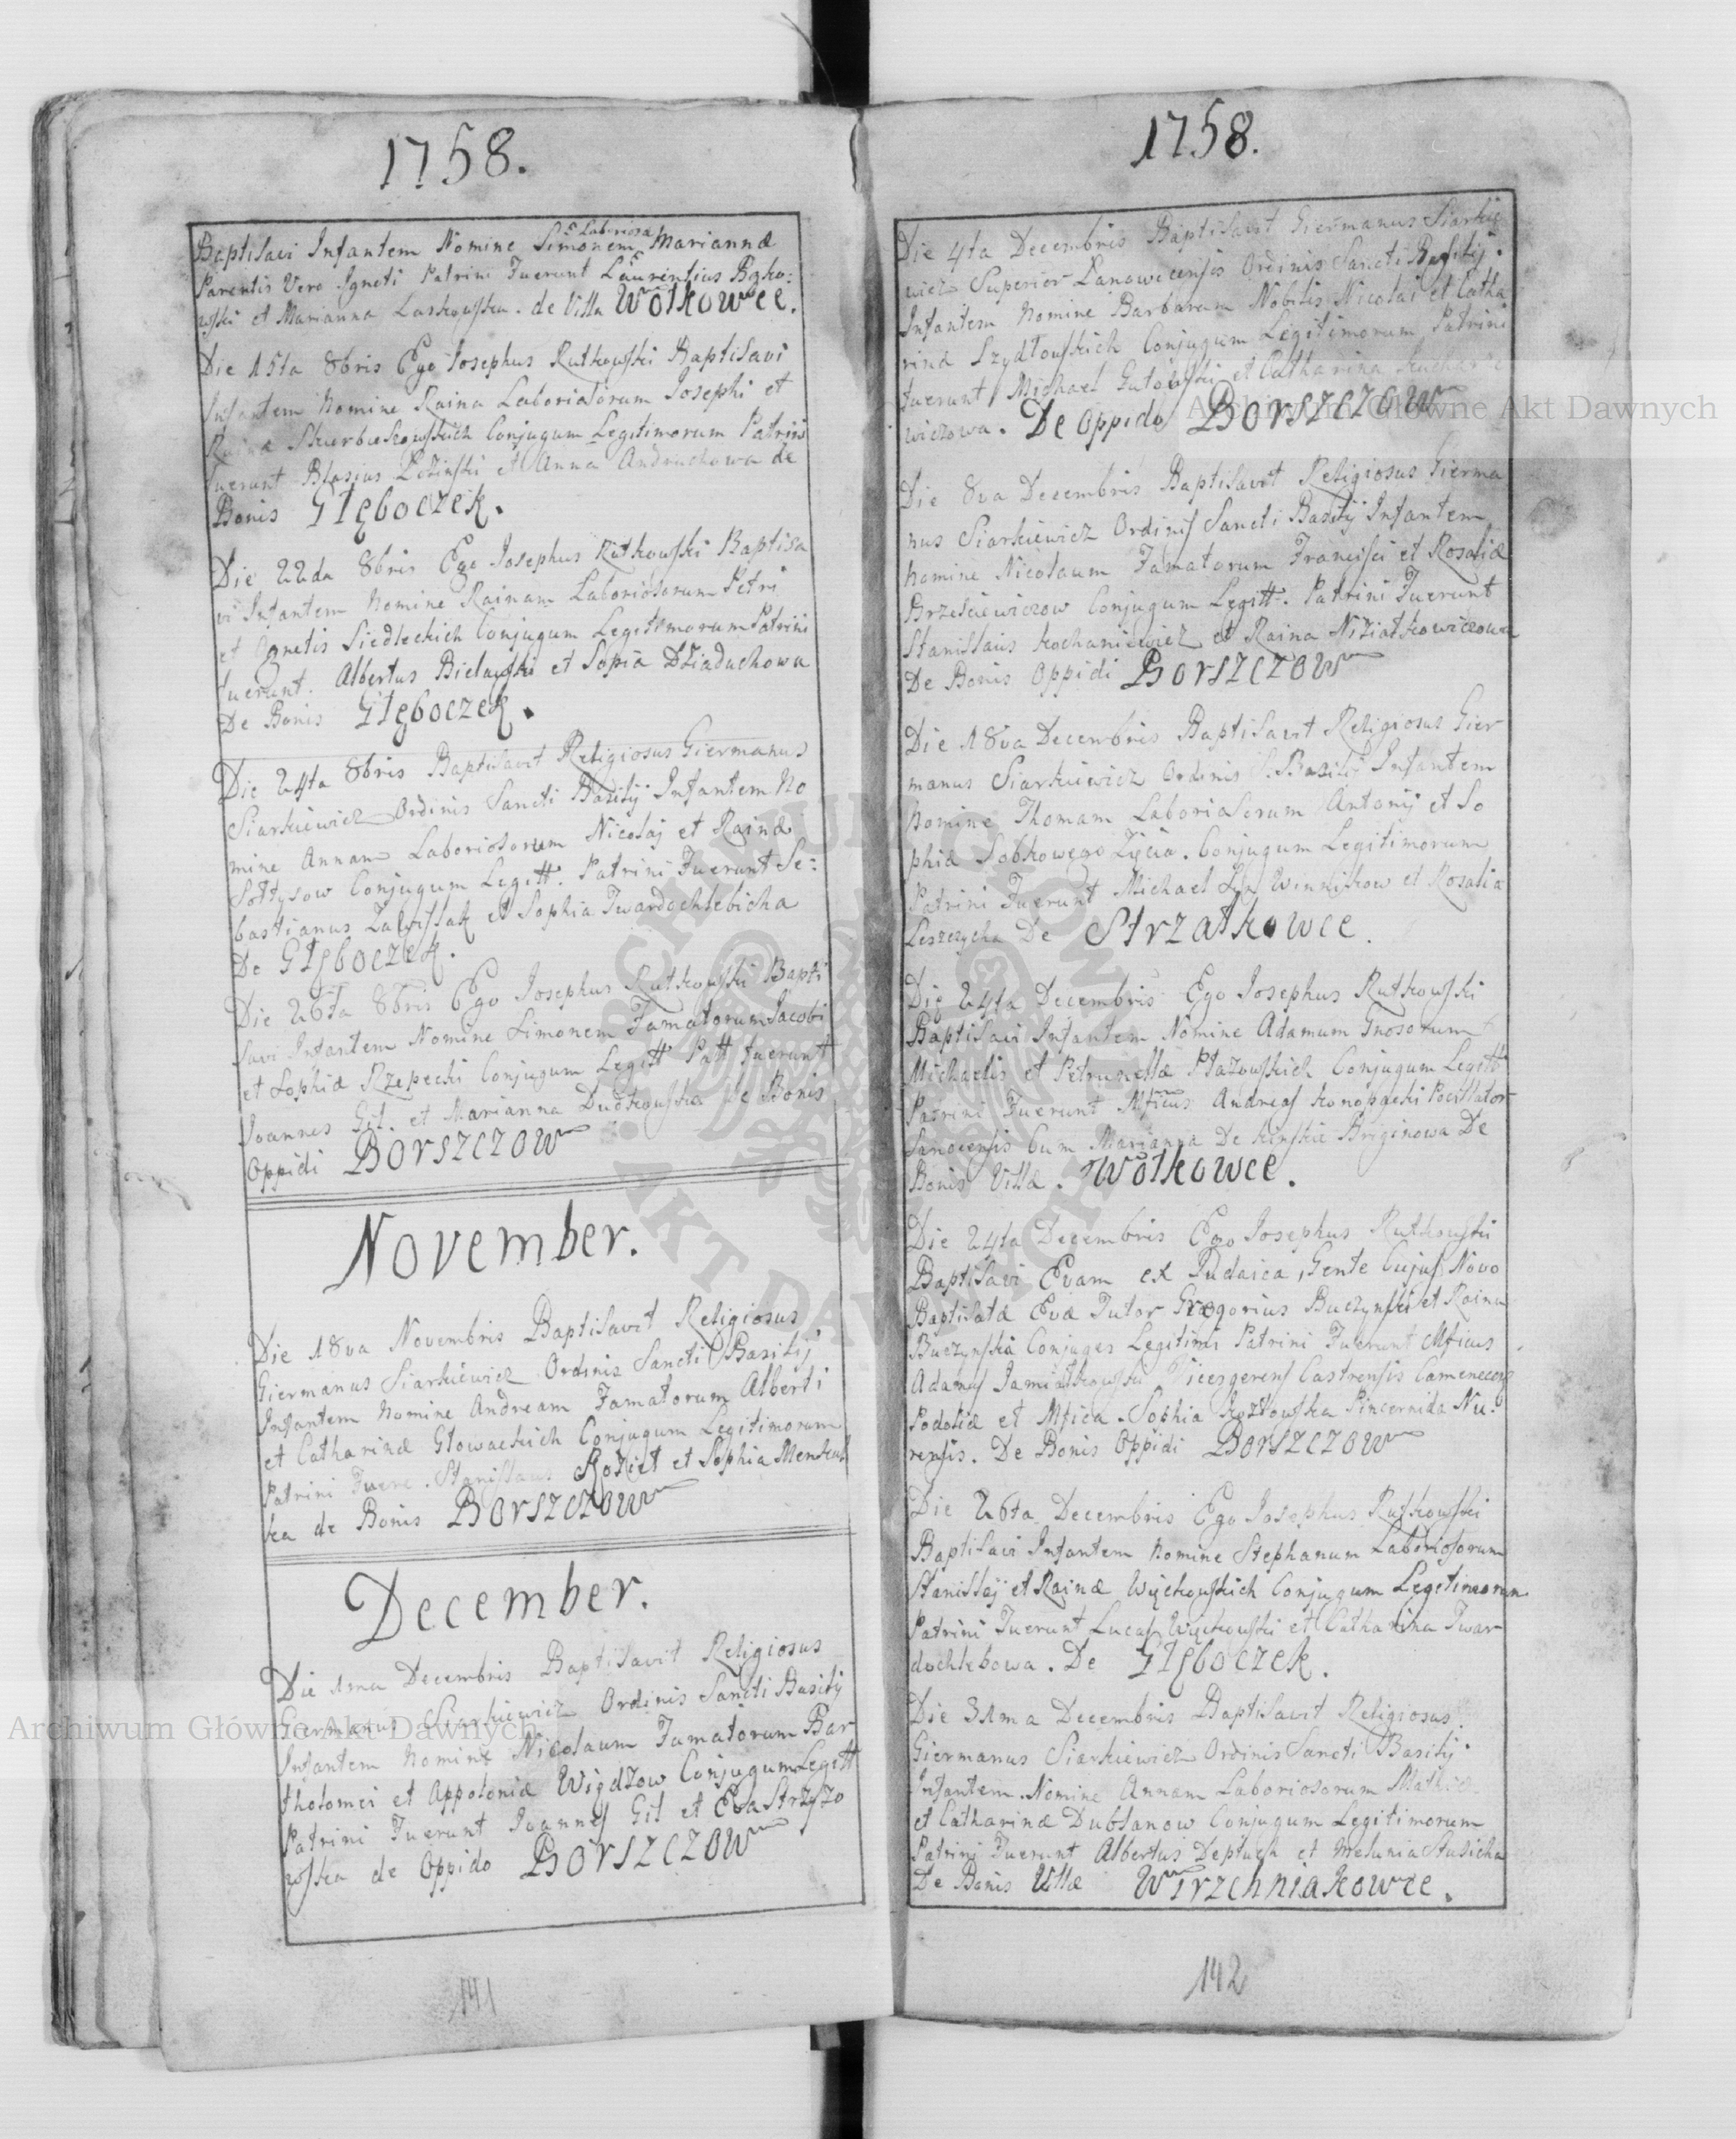 1758.
Baptisavi Infantem Nomine Simonem Laboriosa Mariannæ
Parentis Vero Igneti Patrini Fuerunt Laurentius
et Marianna Laskowska. de Villa Wołkowce.
Die 15ta 8bris Ego Josephus Rutkowski Baptisavi
Infantem Nomine Raina Laboriosorum Josephi et
Raina Conjugum Legitimorum Patrini
fuerunt Blasius et Anna Andruchowa de
Bonis Głęboczek.
Die 22da 8bris Ego Josephus Rutkowski Baptisa
vi Infantem Nomine Rainam Laboriosorum Petri
et Agnetis Siedleckich Conjugum Legitimorum Patrini
fuerunt. Albertus Bielawski et Sopia Dziaduchowa
De Bonis Głęboczek.
Die 24ta 8bris Baptisavit Religiosus Giermanus
Siarkiewicz Ordinis Sancti Basilij Infantem No
mine Annam Laboriosorum Nicolaj et Rainæ
Sołtysow Conjugum Legitt. Patrini Fuerunt Se:
bastianus et Sophia Twardochlebicha
De Głęboczek.
Die 26ta 8bris Ego Josephus Rutkowski Bapti
savi Infantem Nomine Simonem Famatorum Jacobi
et Sophiæ Rzepecki Conjugum Legitt Patt fuerunt
Joannes Gil. et Marianna Dudkowska de Bonis
Oppidi Borszczow
November.
Die 18va Novembris Baptisavit Religiosus
Giermanus Siarkiewicz Ordinis Sancti Basilij
Infantem Nomine Andream Famatorum Alberti
et Catharinæ Głowackich Conjugum Legitimorum
Patrini Fuere. Stanislaus Kozieł et Sophia
ka de Bonis Borszczow
December.
Die 1ma Decembris Baptisavit Religiosus
Giermanus Siarkiewicz Ordinis Sancti Basilij
Infantem Nomine Nicolaum Famatorum Bar
tholomei et Appoloniæ Conjugum Legitt
Patrini Fuerunt Joannes Gil et Eva Strzyżo
wska de Oppido Borszczow
141
1758.
Die 4ta Decembris Baptisavit Giermanus Siarkie
wicz Superior Ordinis Sancti Basilij.
Infantem Nomine Barbaram Nobilis Nicolai et Catha
rinæ Szydłowskich Conjugum Legitimorum Patrini
fuerunt Michael Gutowski et Catharina
wiczowa. De Oppido Borszczow
Die 8va Decembris Baptisavit Religiosus Gierma
nus Siarkiewicz Ordinis Sancti Basilij Infantem
Nomine Nicolaum Famatorum Francisci et Rosaliæ
Brzeskiewiczow Conjugum Legitt. Patrini Fuerunt
Stanislaus Kochaniewicz et Raina
De Bonis Oppidi Borszczow
Die 18va Decembris Baptisavit Religiosus Gier
manus Siarkiewicz Ordinis S. Basilij Infantem
Nomine Thomam Laboriosorum Antonij et So
phiæ Sobkowego Zięcia. Conjugum Legitimorum
Patrini Fuerunt Michael Syn et Rosalia
Leszczycha De Strzałkowce.
Die 24ta Decembris Ego Josephus Rutkowski
Baptisavi Infantem Nomine Adamum Gnosorum
Michaelis et Petrunellæ Płazowskich Conjugum Legitt
Patrini Fuerunt Mficus Andreas Konopacki Pocillator
Sanocensis Cum Marianna De Briginowa De
Bonis Villæ. Wołkowce.
Die 24ta Decembris Ego Josephus Rutkowski
Baptisavi Evam ex Judaica, Gente Cujus Novo
Baptisatæ Evæ Tutor Gregorius Buczynski et Raina
Buczynska Conjuges Legitimi Patrini Fuerunt Mficus
Adamus Vicesgerens Castrensis
Podoliæ et Mfica. Sophia Kozłowska Pincernida Nu.
rensis. De Bonis Oppidi Borszczow
Die 26ta Decembris Ego Josephus Rutkowski
Baptisavi Infantem Nomine Stephanum Laboriosorum
et Rainæ Więckowskich Conjugum Legitimorum
Patrini Fuerunt Lucas Więckowski et Catharina Twar
dochlebowa. De Głęboczek.
Die 31ma Decembris Baptisavit Religiosus
Giermanus Siarkiewicz Ordinis Sancti Basilij
Infantem. Nomine Annam Laboriosorum
et Catharinæ Dublanow Conjugum Legitimorum
Patrini Fuerunt Albertus Deptuch et
De Bonis Villæ Wirzchniakowce.
142
Archiwum Główne Akt Dawnych
Archiwum Główne Akt Dawnych
ARCHIWUM GŁÓWNE AKT DAWNYCH